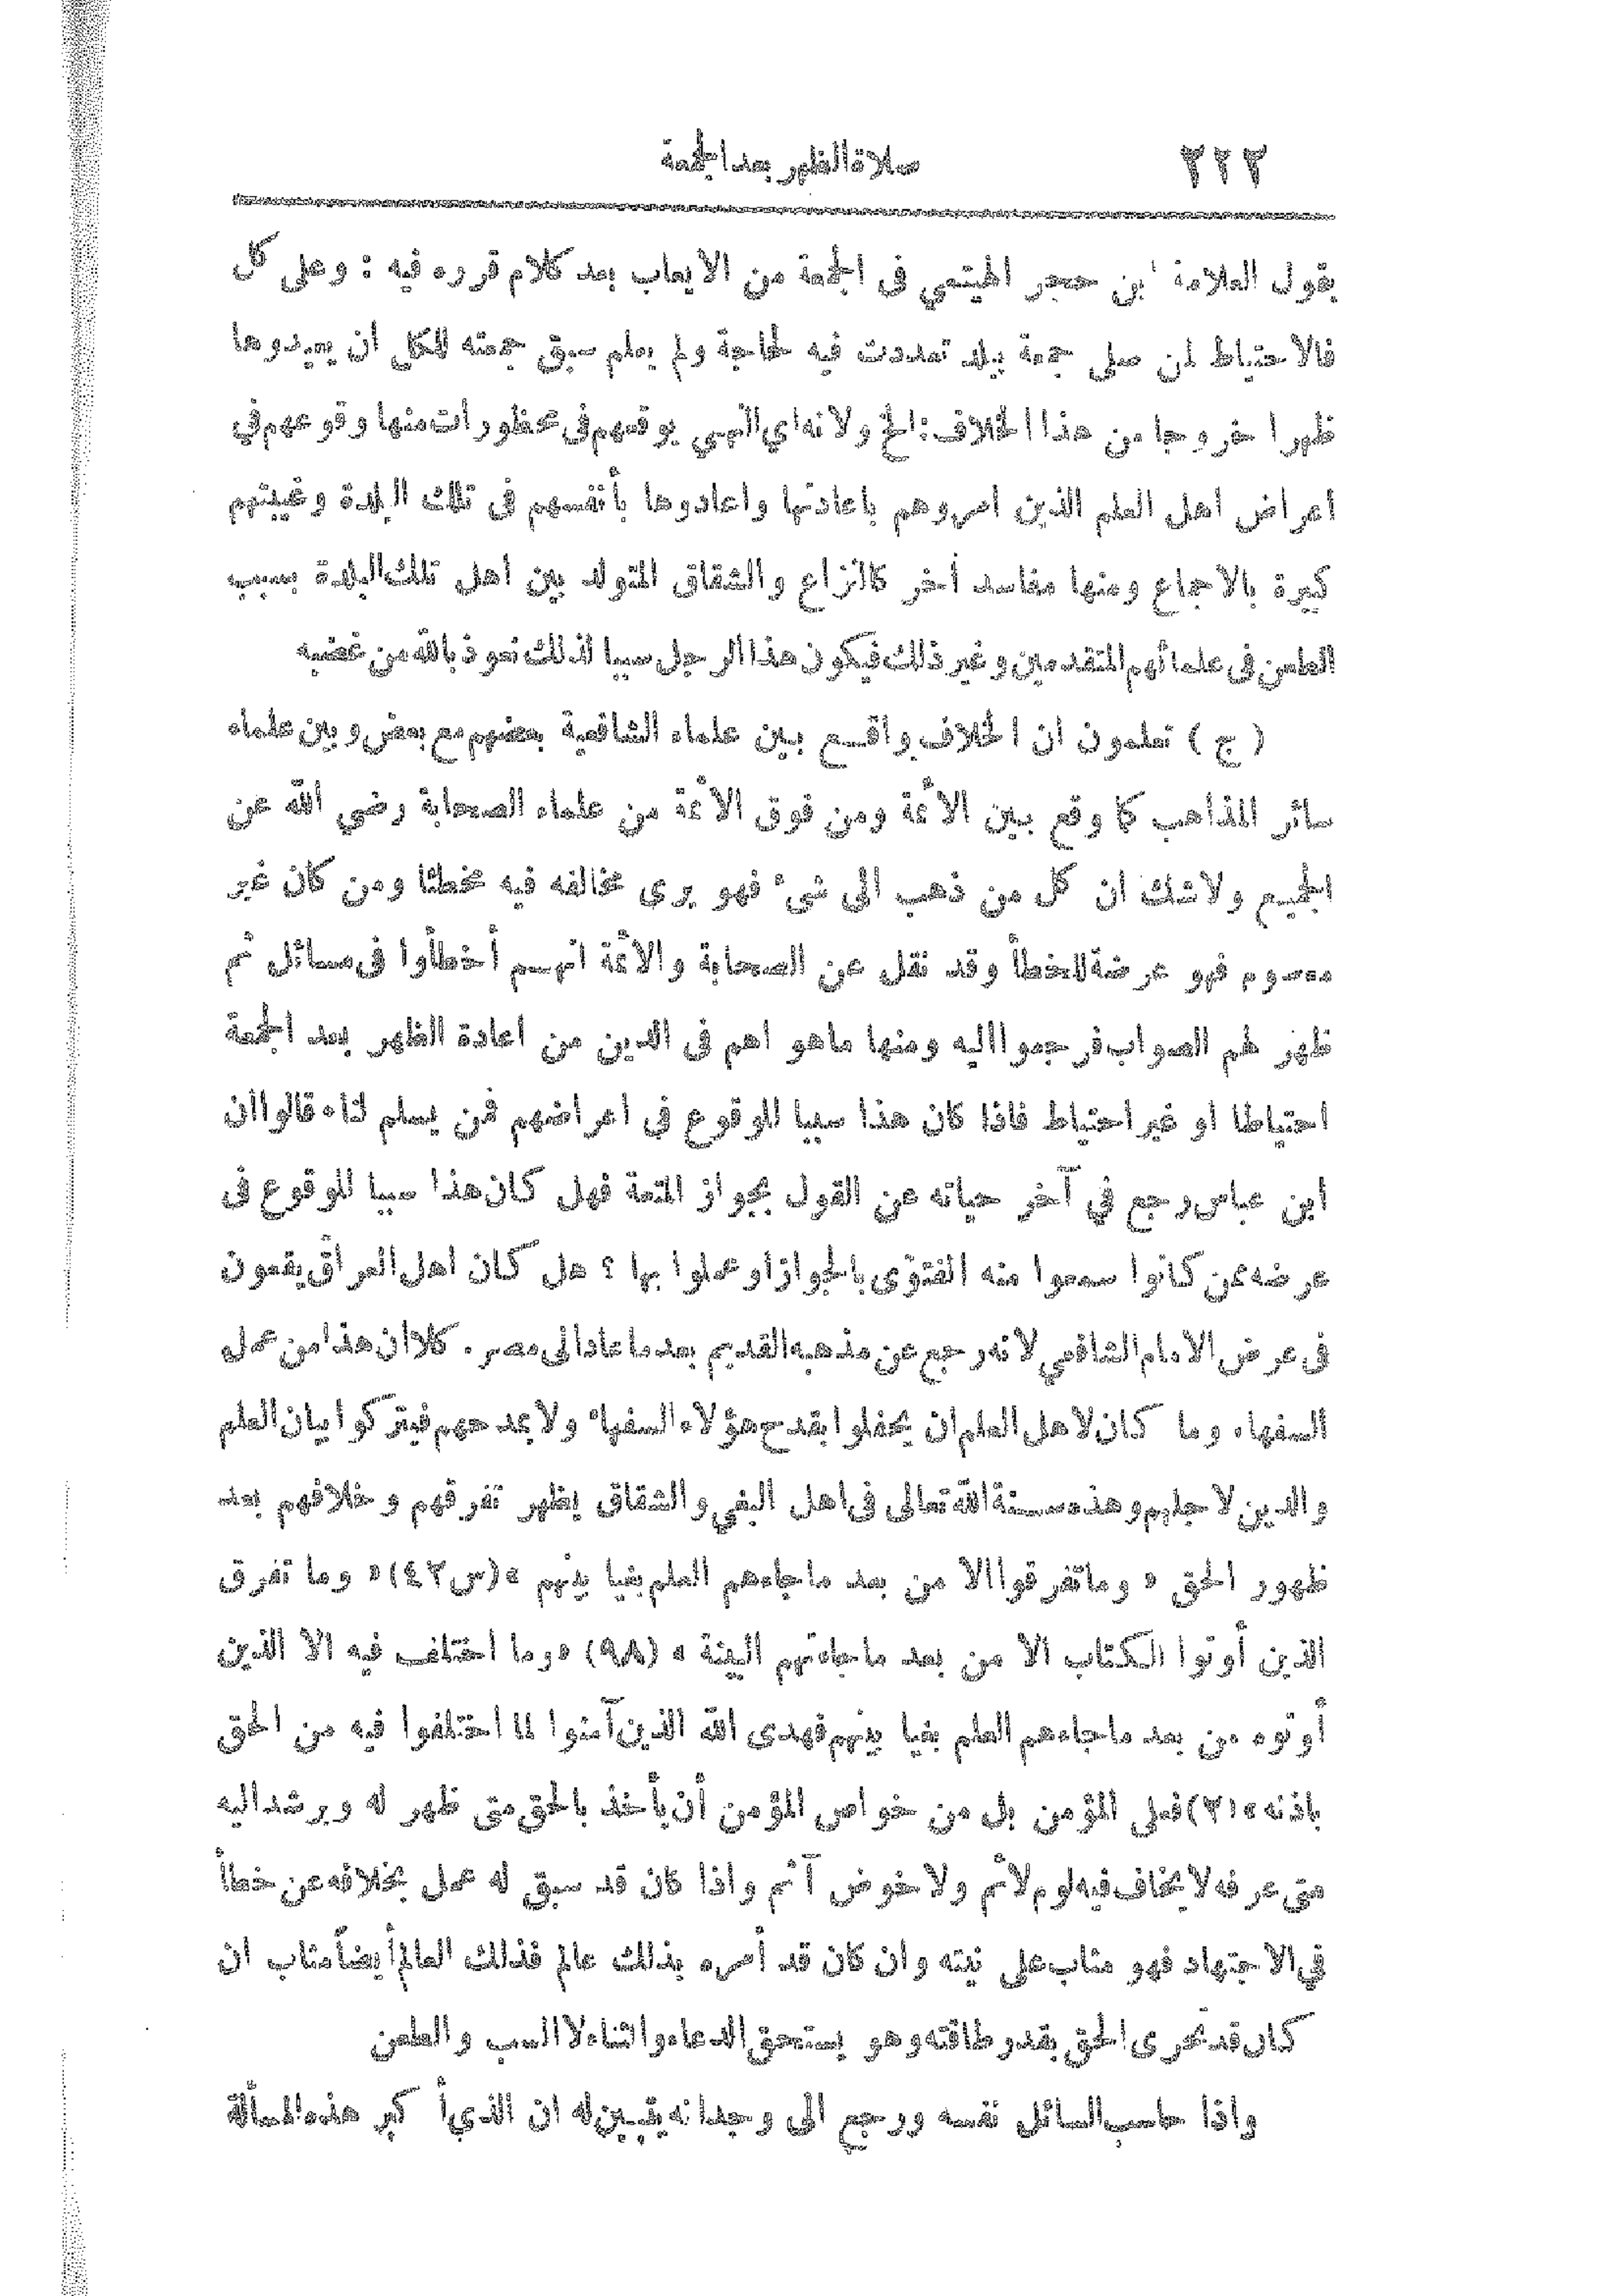 ٢٢٢ صلاة الظهر بعد الجمعة
يقول العلامة ابن حجر الهيتمي فى الجمعة من الايعاب بعد كلام قرره فيه : وعلى كل
فالاحتياط لمن صلى جمعة ببلد تعددت فيه لحاجة ولم يعلم سبق جمعته للكل أن يعيدوها
ظهرا خروجا من هذا الخلاف : الخ ولانه اي النهي يوقعهم فى محظورات منها وقوعهم في
اعراض اهل العلم الذين امروهم باعادتها واعادوها بأنفسهم فى تلك البلدة وغيبتهم
كبيرة بالاجماع ومنها مفاسد أخر كالنزاع والشقاق المتولد بين اهل تلك البلدة بسبب
الطعن فى علمائهم المتقدمين وغير ذلك فيكون هذا الرجل سببا لذلك نعوذ بالله من غضبه
( ج ) تعلمون ان الخلاف واقع بين علماء الشافعية بعضهم مع بعض وبين علماء
سائر المذاهب كما وقع بين الأئمة ومن فوق الأئمة من علماء الصحابة رضي الله عن
الجميع ولاشك ان كل من ذهب الى شئ فهو يرى مخالفه فيه مخطئا ومن كان غير
معصوم فهو عرضة للخطأ وقد نقل عن الصحابة والأئمة انهم أخطأوا فى مسائل ثم
ظهر لهم الصواب فرجعوا اليه ومنها ماهو اهم فى الدين من اعادة الظهر بعد الجمعة
احتياطا او غير احتياط فاذا كان هذا سببا للوقوع في اعراضهم فمن يسلم لنا، قالوا ان
ابن عباس رجع في آخر حياته عن القول بجواز المتعة فهل كان هذا سببا للوقوع فى
عرضه ممن كانوا سمعوا منه الفتوى بالجواز او عملوا بها ؟ هل كان اهل العراق يقعون
فى عرض الامام الشافعي لانه رجع عن مذهبه القديم بعد ما عاد الى مصر . كلا ان هذا من عمل
السفهاء وما كان لاهل العلم ان يحفلوا بقدح هؤلاء السفهاء ولا بمدحهم فيتركوا بيان العلم
والدين لاجلهم وهذه سنة الله تعالى فى اهل البغي والشقاق يظهر تفرقهم وخلافهم بعد
ظهور الحق « وما تفرقوا الا من بعد ما جاءهم العلم بغيا بينهم » (س٤٢) « وما تفرق
الذين أوتوا الكتاب الا من بعد ما جاءتهم البينة » (٩٨) «وما اختلف فيه الا الذين
أوتوه من بعد ما جاءهم العلم بغيا بينهم فهدى الله الذين آمنوا لما اختلفوا فيه من الحق
باذنه» (٢) فعلى المؤمن بل من خواص المؤمن أن يأخذ بالحق متى ظهر له ويرشد اليه
متى عرفه لا يخاف فيه لوم لائم ولا خوض آثم واذا كان قد سبق له عمل بخلافه عن خطأ
في الاجتهاد فهو مثاب على نيته وان كان قد أمره بذلك عالم فذلك العالم أيضاً مثاب ان
كان قد تحرى الحق بقدر طاقته وهو يستحق الدعاء والثناء لا السب والطعن
واذا حاسب السائل نفسه ورجع الى وجدانه يتبين له ان الذي أكبر هذه المسألة